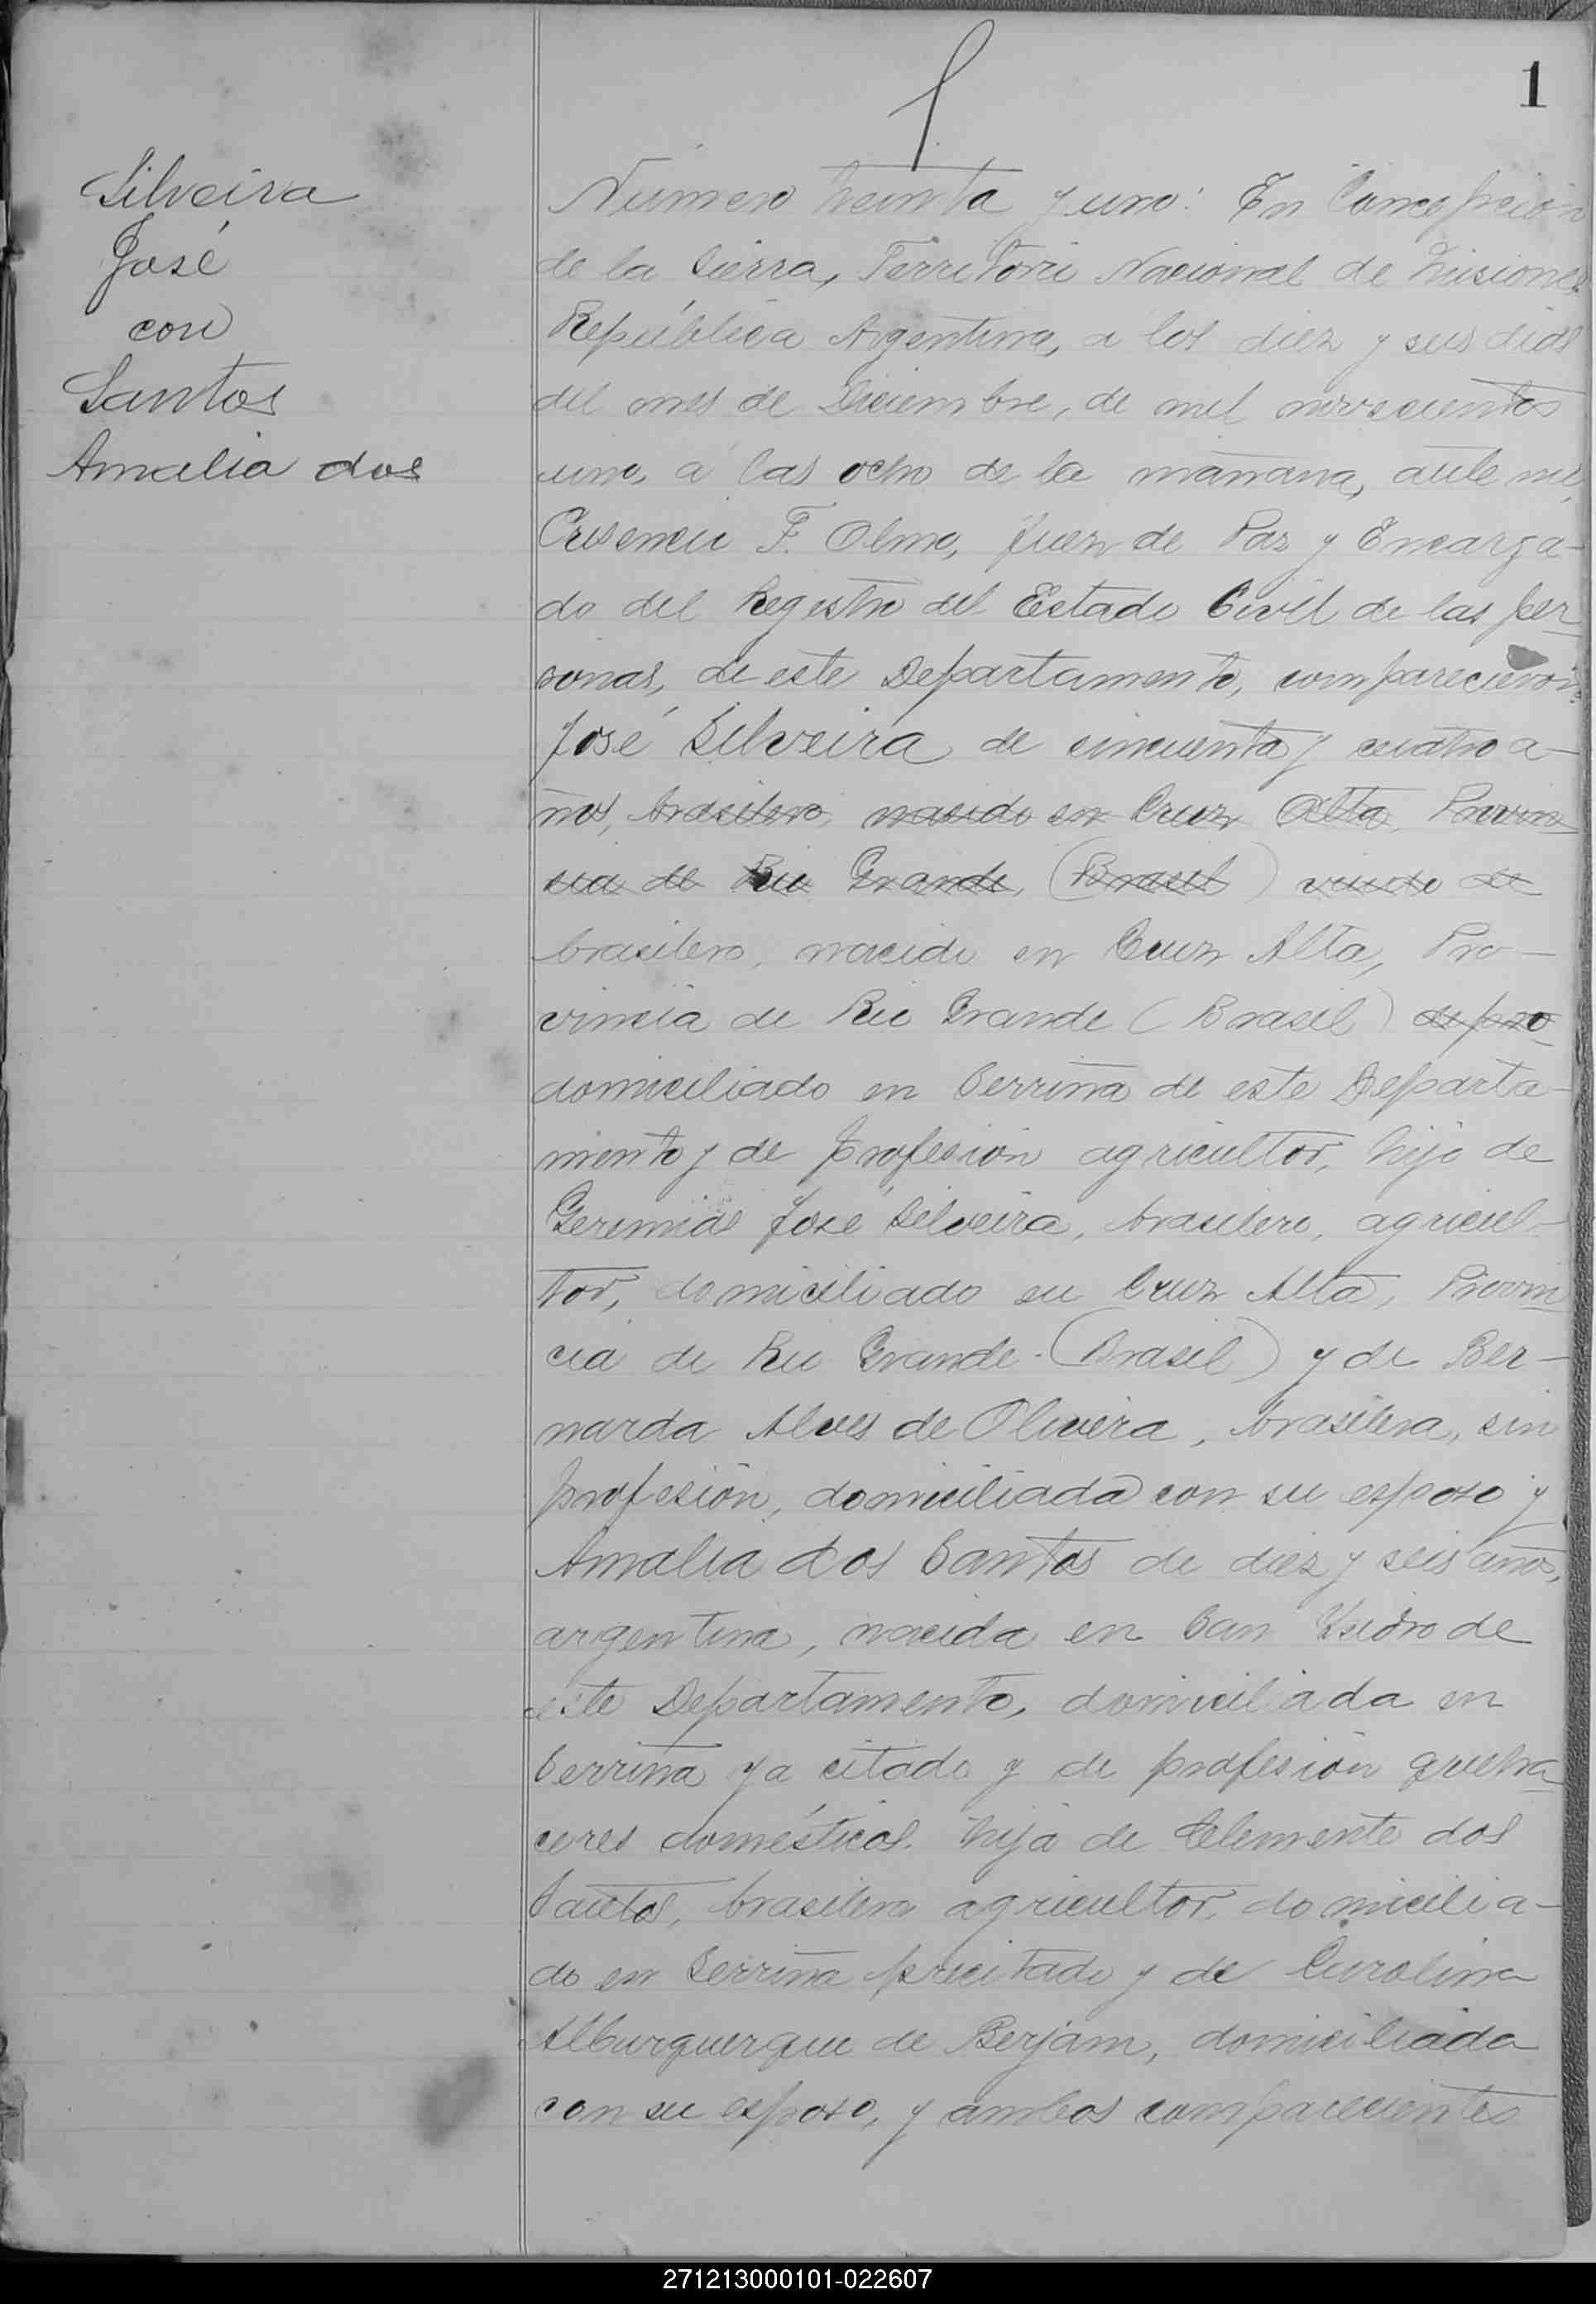 1
Silveira
José
con
Santos
Amalia dos
Número treinta y uno: En Concepción
de la Sierra, Territorio Nacional de Misiones
República Argentina, a los diez y seis dias
del mes de Diciembre, de mil novecientos
uno, a las ocho de la mañana, ante mi,
Cresencio F. Olmo, Juez de Paz y Encarga-
do del Registro del Estado Civil de las per-
sonas, de este Departamento, comparecieron:
José Silveira de cincuenta y cuatro a-
ños, brasilero, nacido en Cruz Alta, Provin-
cia de Rio Grande, (Brasil) viudo de
brasilero, nacido en Cruz Alta, Pro-
vincia de Rio Grande (Brasil) de pro-
domiciliado en Serrina de este Departa-
mento y de profesión agricultor, hijo de
Geremias José Silveira, brasilero, agricul-
tor, domiciliado en Cruz Alta, Provin-
cia de Rio Grande (Brasil) y de Ber-
narda Alves de Olivera, brasilera, sin
profesión, domiciliada con su esposo y
Amalia dos Santos de diez y seis años,
argentina, nacida en San Ysidro de
este Departamento, domiciliada en
Serrina ya citado y de profesión queha-
ceres domésticos. hija de Clemente dos
Santos, brasilero agricultor, domicilia-
do en Serrina precitado y de Carolina
Alburquerque de Berjam, domiciliada
con su esposo, y ambos comparecientes
271213000101-022607